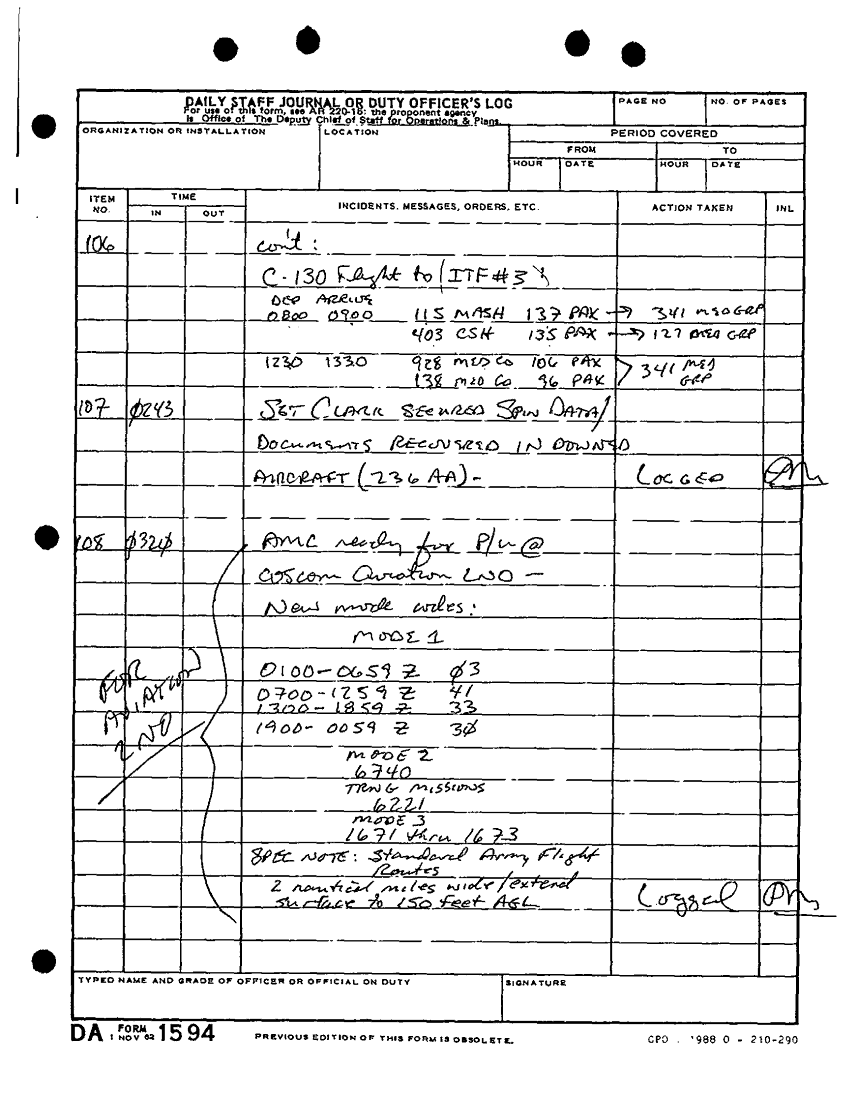 DAILY STAFF JOURNAL OR DUTY OFFICER'S LOG
For use of this form, see AR 220-15; the proponent agency
is Office of The Deputy Chief of Staff for Operations & Plans.
PAGE NO
NO. OF PAGES
ORGANIZATION OR INSTALLATION
LOCATION
PERIOD COVERED
FROM
TO
HOUR
DATE
HOUR
DATE
ITEM NO.
TIME
IN
OUT
INCIDENTS, MESSAGES, ORDERS, ETC.
ACTION TAKEN
INL
106 con't:
C-130 Flight to (ITF #3)
DEP ARRIVE
0800 0900 115 MASH 137 PAX → 341 MED GRP
403 CSH 135 PAX → 127 MED GRP
1230 1330 928 MED CO 106 PAX
138 MED CO 96 PAX
341 MED
GRP
107 0243 SGT CLARK SECURED SPIN DATA/
DOCUMENTS RECOVERED IN DOWNED
AIRCRAFT (236 AA) - LOGGED
108 0320 AMC ready for P/u @
COSCOM Aviation LNO -
New mode codes:
MODE 1
0100-0659 Z 03
0700-1259 Z 41
1300-1859 Z 33
1900-0059 Z 30
FOR
AVIATION
LNO
MODE 2
6740
TRNG MISSIONS
6221
MODE 3
1671 thru 1673
SPEC NOTE: Standard Army Flight
Routes
2 nautical miles wide/extend
surface to 150 feet AGL Logged
TYPED NAME AND GRADE OF OFFICER OR OFFICIAL ON DUTY
SIGNATURE
DA FORM 1 NOV 62 1594
PREVIOUS EDITION OF THIS FORM IS OBSOLETE.
GPO : 1988 O - 210-290